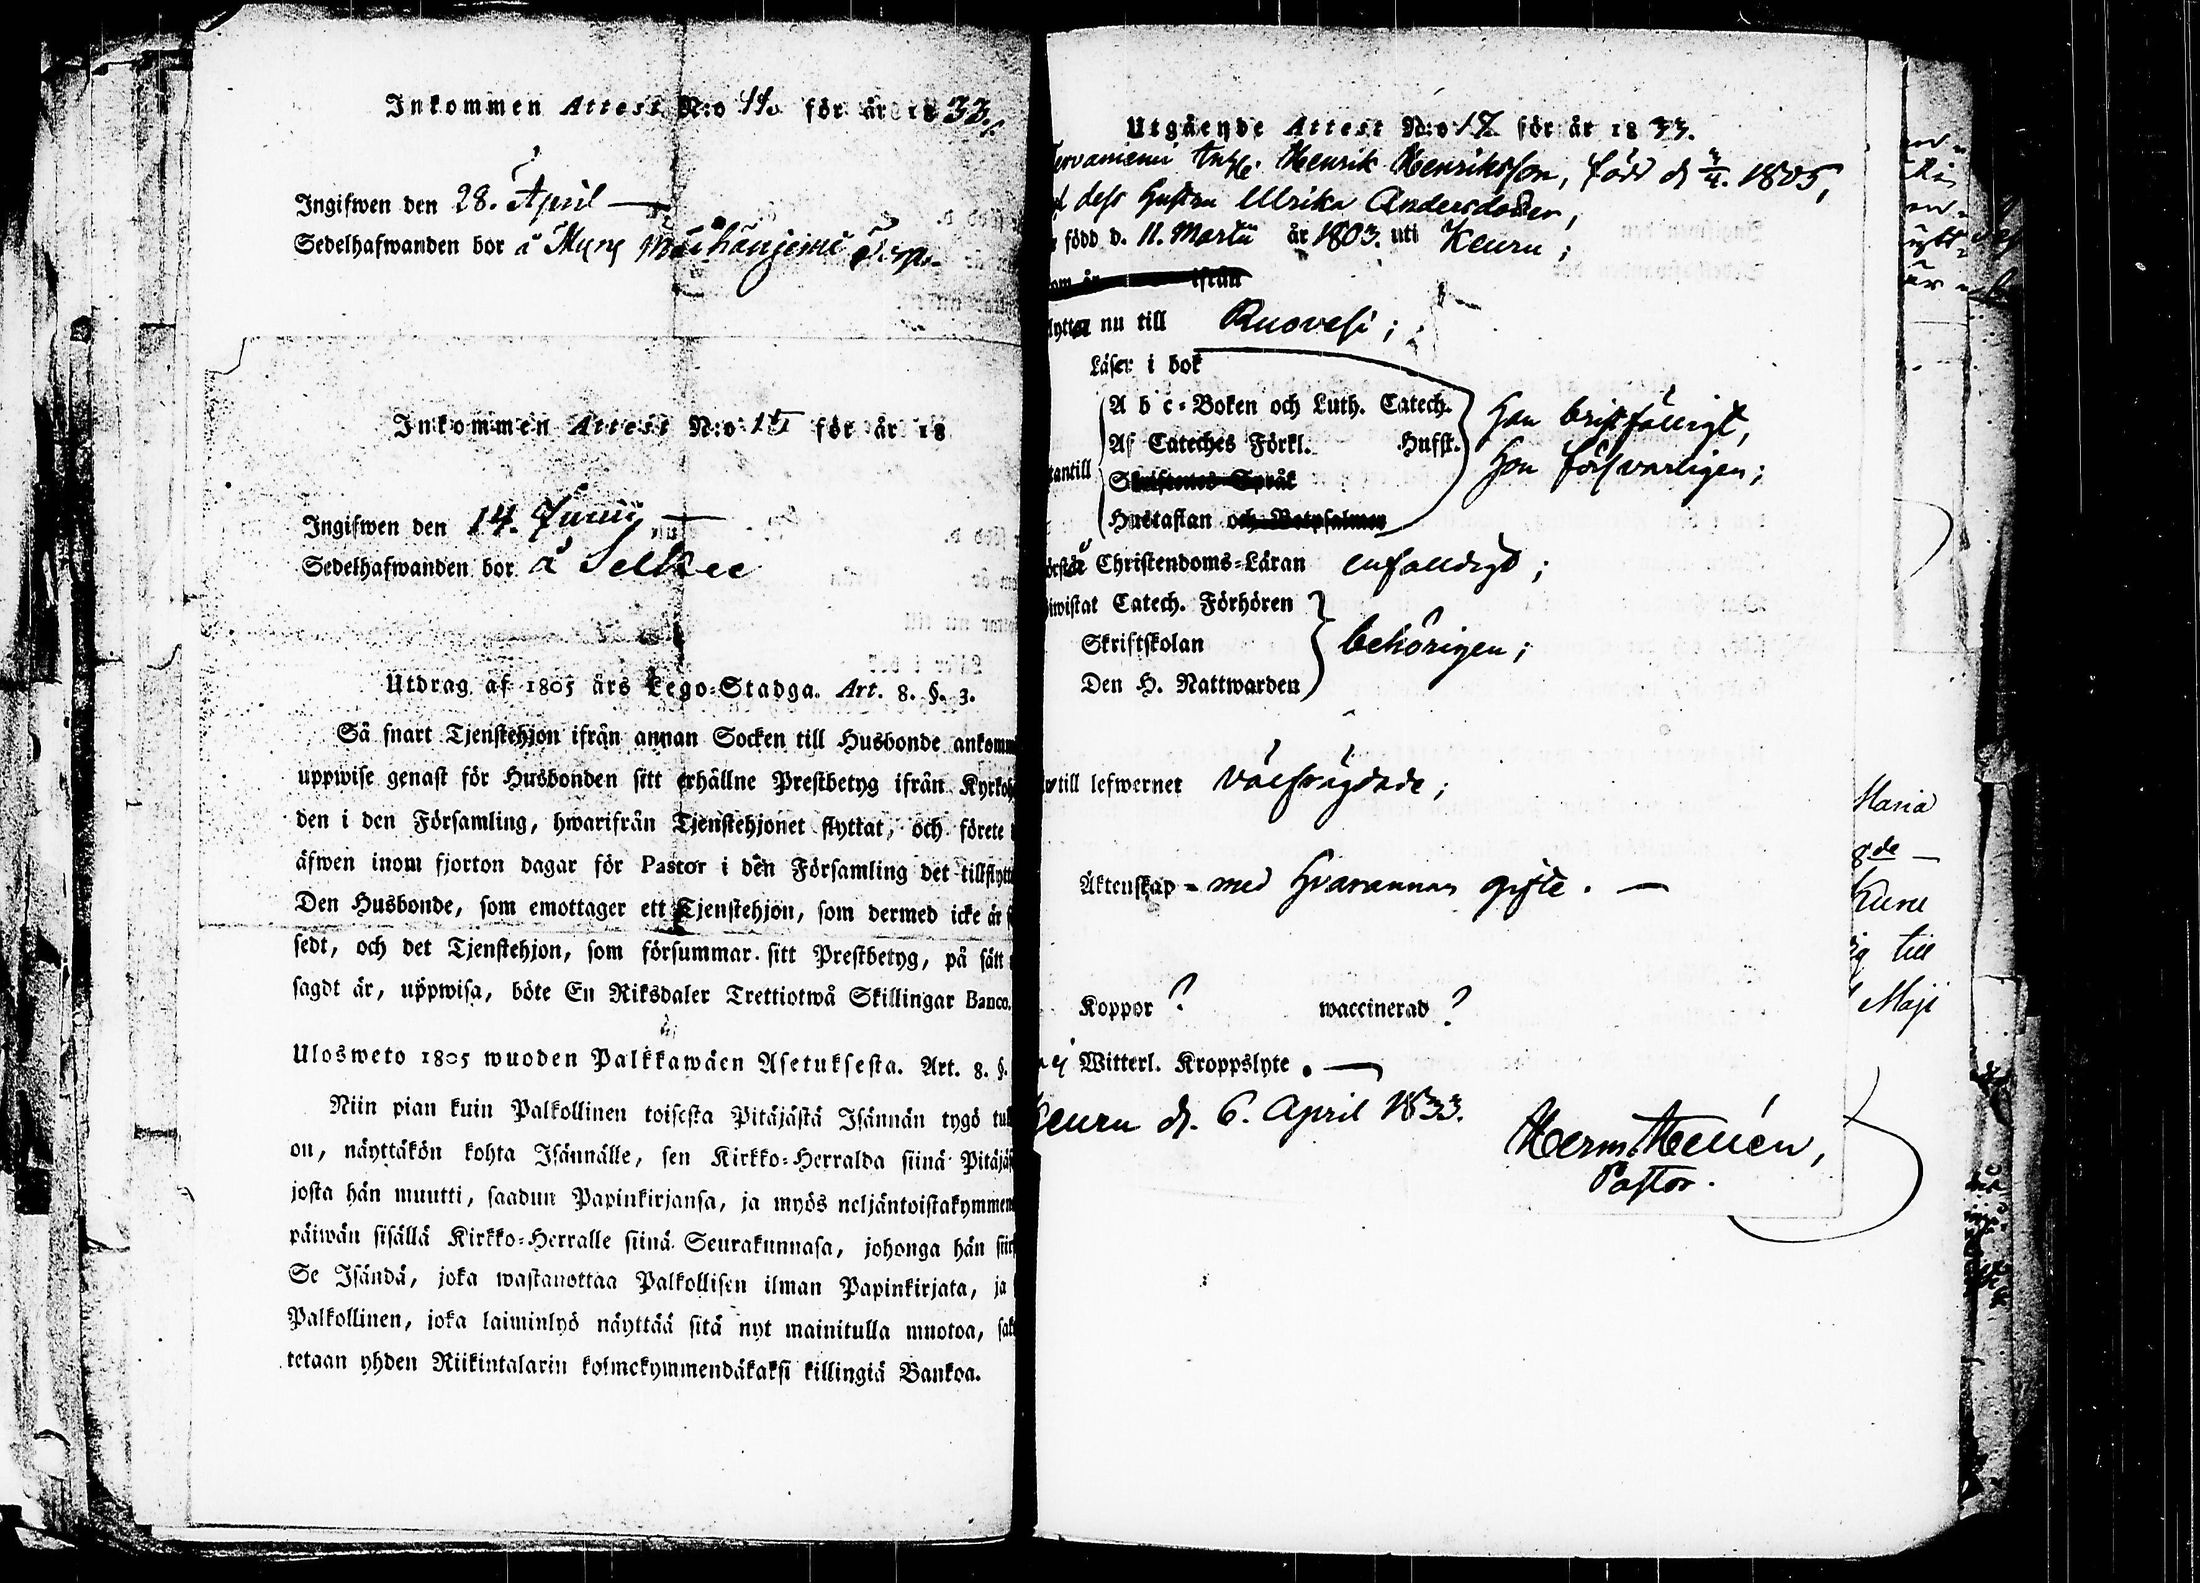 Inkommen Attest N:o 11. för år 18 33.
Ingifwen den 28. April —
Sedelhafwanden bor å
Inkommen Attest N:o 15 för år 18
Ingifwen den 14. Junii —
Sedelhafwanden bor å Selkee
Utdrag af 1805 års Lego-Stadga. Art. 8. §. 3.
Så snart Tjenstehjon ifrån annan Socken till Husbonde ankomm
uppwise genast för Husbonden sitt erhållne Prestbetyg ifrån Kyrkoh
den i den Församling, hwarifrån Tjenstehjonet flyttat, och förete
äfwen inom fjorton dagar för Pastor i den Församling det tillflytt
Den Husbonde, som emottager ett Tjenstehjon, som dermed icke är
sedt, och det Tjenstehjon, som försummar sitt Prestbetyg, på sätt
sagdt är, uppwisa, böte En Riksdaler Trettiotwå Skillingar Banco.
Ulosweto 1805 wuoden Palkkawäen Asetuksesta. Art. 8. §.
Niin pian kuin Palkollinen toisesta Pitäjästä Isännän tygö tul
on, näyttäkön kohta Isännälle, sen Kirkko-Herralda siinä Pitäjäs
josta hän muutti, saadun Papinkirjansa, ja myös neljäntoistakymmen
päiwän sisällä Kirkko-Herralle siinä Seurakunnasa, johonga hän siir
Se Isändä, joka wastanottaa Palkollisen ilman Papinkirjata, ja
Palkollinen, joka laiminlyö näyttää sitä nyt mainitulla muotoa, sak
tetaan yhden Riikintalarin kolmekymmendäkaksi killingiä Bankoa.
Utgående Attest N:o 17 för år 18 33.
Henrik Henriksson, född d. 1805,
dess hustru Ulrika Andersdotter,
född d. 11. Martii år 1803. uti Keuru;
ifrån
lyttar nu till Ruovesi;
Läser i bok
A b c-Boken och Luth. Catech.
Af Cateches Förkl. Husst.
tantill
Skriftenes Språk
Hustaflan och Botpsalmer
han bristfälligt,
hon försvarligen;
Christendoms-Läran enfaldigt;
iwistat Catech. Förhören
Skriftskolan
Den H. Nattwarden
behörigen;
till lefwernet välfrägdade;
Äktenskap - med hvarannan gifte. —
Koppor ? waccinerad ?
Witterl. Kroppslyte. —
Keuru d. 6. April 1833.
Herm. Hellén,
Pastor.
Maria
till
Maji